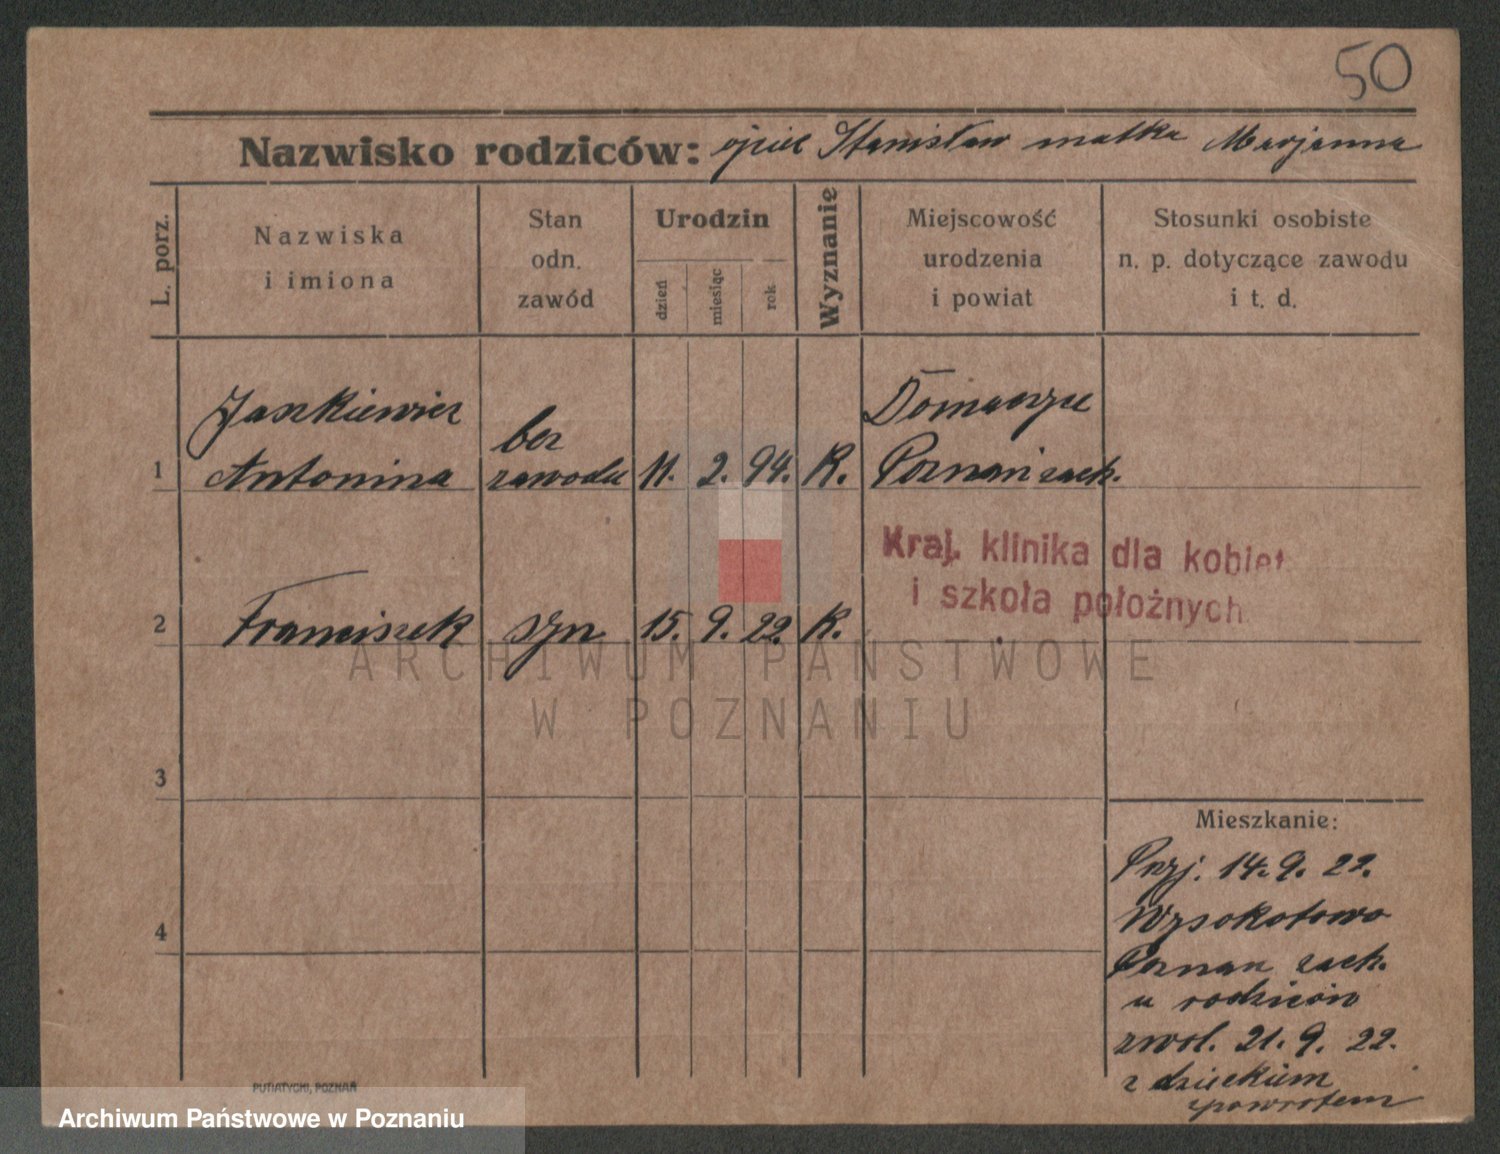 50
Nazwisko rodziców: ojciec Stanisław matka Marjanna
L. porz.
Nazwiska
i imiona
Stan
odn.
zawód
Urodzin
dzień
miesiąc
rok
Wyznanie
Miejscowość
urodzenia
i powiat
Stosunki osobiste
n. p. dotyczące zawodu
i t. d.
Jaszkiewicz
Antonina
bez
zawodu
1
11. 2. 94. K.
Poznań zach.
Kraj. klinika dla kobiet
i szkoła położnych
2 Franciszek syn 15. 9. 22. K.
ARCHIWUM PAŃSTWOWE
W POZNANIU
3
4
Mieszkanie:
Przj. 14. 9. 22.
Wysokotowo
Poznań zach.
u rodziców
zwol. 21. 9. 22.
z dzieckiem
spowrotem
PUTIATYCKI, POZNAŃ
Archiwum Państwowe w Poznaniu